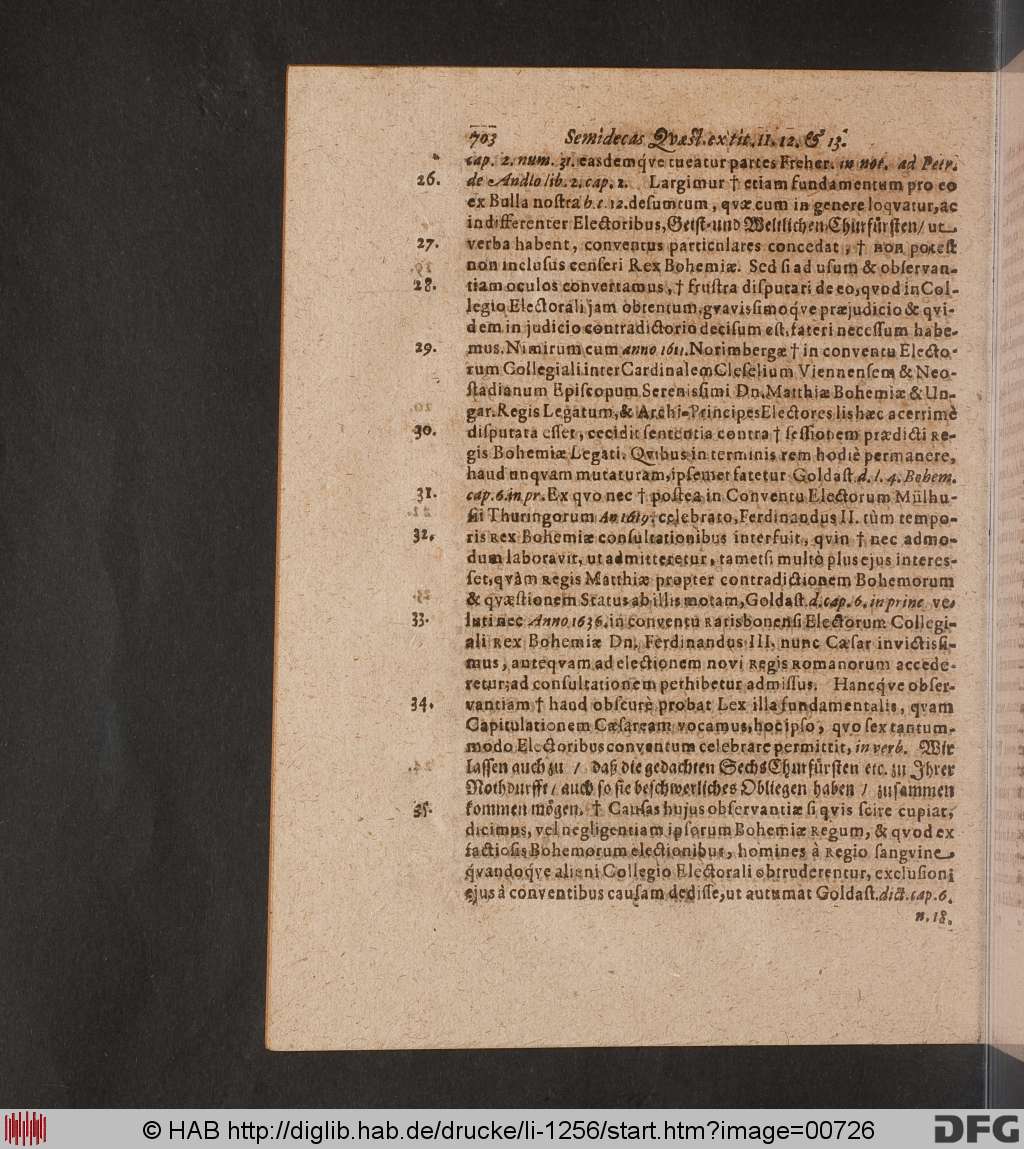 703 Semidecas Qvæst. ex tit. 11. 12. & 13.
cap. 2. num. 31. easdemq́ve tueatur partes Freher. in not. ad Petr.
26. de Andlo lib. 2. cap. 1. Largimur † etiam fundamentum pro eo
ex Bulla nostra b. t. 12. desumtum, qvæ cum in genere loqvatur, ac
indifferenter Electoribus, Geist- und Weltlichen Churfürsten / ut
27. verba habent, conventus particulares concedat, † non potest
non inclusus censeri Rex Bohemiæ. Sed si ad usum & observan-
28. tiam oculos convertamus, † frustra disputari de eo, qvod in Col-
legio Electorali jam obtentum, gravissimoq́ve præjudicio & qvi-
dem in judicio contradictorio decisum est, fateri necessum habe-
29. mus. Nimirum cum anno 1611. Norimbergæ † in conventu Electo-
rum Collegiali inter Cardinalem Cleselium Viennensem & Neo-
stadianum Episcopum Serenissimi Dn. Matthiæ Bohemiæ & Un-
gar. Regis Legatum, & Archi-Principes Electores lis hæc acerrimè
30. disputata esset, cecidit sententia contra † sessionem prædicti Re-
gis Bohemiæ Legati. Qvibus in terminis rem hodiè permanere,
haud unqvam mutaturam, ipsemet fatetur Goldast. d. l. 4. Bohem.
31. cap. 6. in pr. Ex qvo nec † postea in Conventu Electorum Mülhu-
sii Thuringorum An 1619. celebrato, Ferdinandus II. tùm tempo-
32. ris Rex Bohemiæ consultationibus interfuit, qvin † nec admo-
dum laboravit, ut admitteretur, tametsi multò plus ejus interes-
set, qvàm Regis Matthiæ propter contradictionem Bohemorum
& qvæstionem Status ab illis motam, Goldast. d. cap. 6. in princ ve-
33. luti nec Anno 1636. in conventu Ratisbonensi Electorum Collegi-
ali Rex Bohemiæ Dn. Ferdinandus III. nunc Cæsar invictissi-
mus, anteqvam ad electionem novi Regis Romanorum accede-
retur; ad consultationem perhibetur admissus. Hancq́ve obser-
34. vantiam † haud obscurè probat Lex illa fundamentalis, qvam
Capitulationem Cæsaream vocamus, hoc ipso, qvo sex tantum-
modo Electoribus conventum celebrare permittit, in verb. Wir
lassen auch zu / daß die gedachten Sechs Churfürsten etc. zu Ihrer
Nothdurfft / auch so sie beschwerliches Obliegen haben / zusammen
35. kommen mögen. † Causas hujus observantiæ si qvis scire cupiat,
dicimus, vel negligentiam ipsorum Bohemiæ Regum, & qvod ex
factiosis Bohemorum electionibus, homines à Regio sangvine
qvandoq́ve alieni Collegio Electorali obtruderentur, exclusioni
ejus à conventibus causam dedisse, ut autumat Goldast. dict. cap. 6.
n. 18.
© HAB http://diglib.hab.de/drucke/li-1256/start.htm?image=00726
DFG